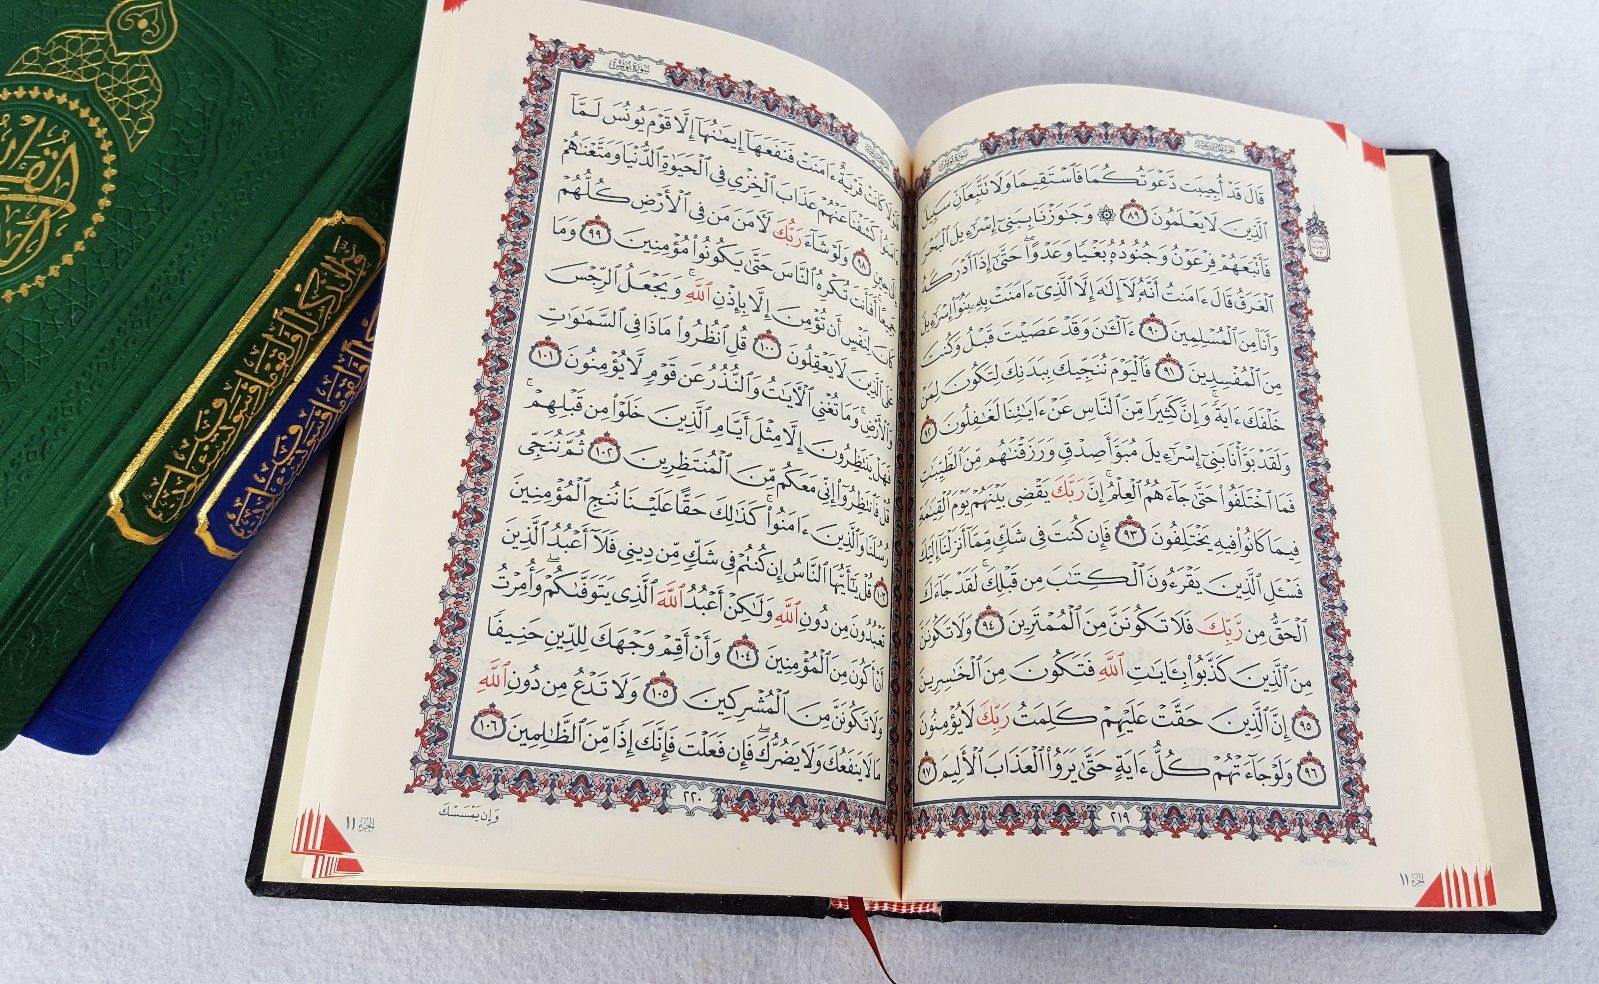 سورة يونس
قَالَ قَدْ أُجِيبَت دَّعْوَتُكُمَا فَٱسْتَقِيمَا وَلَا تَتَّبِعَآنِّ سَبِيلَ
ٱلَّذِينَ لَا يَعْلَمُونَ ٨٩ ۞ وَجَٰوَزْنَا بِبَنِىٓ إِسْرَٰٓءِيلَ ٱلْبَحْرَ
فَأَتْبَعَهُمْ فِرْعَوْنُ وَجُنُودُهُۥ بَغْيًا وَعَدْوًا ۖ حَتَّىٰٓ إِذَآ أَدْرَكَهُ
ٱلْغَرَقُ قَالَ ءَامَنتُ أَنَّهُۥ لَآ إِلَٰهَ إِلَّا ٱلَّذِىٓ ءَامَنَتْ بِهِۦ بَنُوٓا۟ إِسْرَٰٓءِيلَ
وَأَنَا۠ مِنَ ٱلْمُسْلِمِينَ ٩٠ ءَآلْـَٰٔنَ وَقَدْ عَصَيْتَ قَبْلُ وَكُنتَ
مِنَ ٱلْمُفْسِدِينَ ٩١ فَٱلْيَوْمَ نُنَجِّيكَ بِبَدَنِكَ لِتَكُونَ لِمَنْ
خَلْفَكَ ءَايَةً ۚ وَإِنَّ كَثِيرًا مِّنَ ٱلنَّاسِ عَنْ ءَايَٰتِنَا لَغَٰفِلُونَ ٩٢
وَلَقَدْ بَوَّأْنَا بَنِىٓ إِسْرَٰٓءِيلَ مُبَوَّأَ صِدْقٍ وَرَزَقْنَٰهُم مِّنَ ٱلطَّيِّبَٰتِ
فَمَا ٱخْتَلَفُوا۟ حَتَّىٰ جَآءَهُمُ ٱلْعِلْمُ ۚ إِنَّ رَبَّكَ يَقْضِى بَيْنَهُمْ يَوْمَ ٱلْقِيَٰمَةِ
فِيمَا كَانُوا۟ فِيهِ يَخْتَلِفُونَ ٩٣ فَإِن كُنتَ فِى شَكٍّ مِّمَّآ أَنزَلْنَآ إِلَيْكَ
فَسْـَٔلِ ٱلَّذِينَ يَقْرَءُونَ ٱلْكِتَٰبَ مِن قَبْلِكَ ۚ لَقَدْ جَآءَكَ
ٱلْحَقُّ مِن رَّبِّكَ فَلَا تَكُونَنَّ مِنَ ٱلْمُمْتَرِينَ ٩٤ وَلَا تَكُونَنَّ
مِنَ ٱلَّذِينَ كَذَّبُوا۟ بِـَٔايَٰتِ ٱللَّهِ فَتَكُونَ مِنَ ٱلْخَٰسِرِينَ
٩٥ إِنَّ ٱلَّذِينَ حَقَّتْ عَلَيْهِمْ كَلِمَتُ رَبِّكَ لَا يُؤْمِنُونَ
٩٦ وَلَوْ جَآءَتْهُمْ كُلُّ ءَايَةٍ حَتَّىٰ يَرَوُا۟ ٱلْعَذَابَ ٱلْأَلِيمَ ٩٧
٢١٩
الجزء ١١
سورة يونس
فَلَوْلَا كَانَتْ قَرْيَةٌ ءَامَنَتْ فَنَفَعَهَآ إِيمَٰنُهَآ إِلَّا قَوْمَ يُونُسَ لَمَّآ
ءَامَنُوا۟ كَشَفْنَا عَنْهُمْ عَذَابَ ٱلْخِزْىِ فِى ٱلْحَيَوٰةِ ٱلدُّنْيَا وَمَتَّعْنَٰهُمْ
إِلَىٰ حِينٍ ٩٨ وَلَوْ شَآءَ رَبُّكَ لَءَامَنَ مَن فِى ٱلْأَرْضِ كُلُّهُمْ
جَمِيعًا ۚ أَفَأَنتَ تُكْرِهُ ٱلنَّاسَ حَتَّىٰ يَكُونُوا۟ مُؤْمِنِينَ ٩٩ وَمَا
كَانَ لِنَفْسٍ أَن تُؤْمِنَ إِلَّا بِإِذْنِ ٱللَّهِ ۚ وَيَجْعَلُ ٱلرِّجْسَ
عَلَى ٱلَّذِينَ لَا يَعْقِلُونَ ١٠٠ قُلِ ٱنظُرُوا۟ مَاذَا فِى ٱلسَّمَٰوَٰتِ
وَٱلْأَرْضِ ۚ وَمَا تُغْنِى ٱلْءَايَٰتُ وَٱلنُّذُرُ عَن قَوْمٍ لَّا يُؤْمِنُونَ ١٠١
فَهَلْ يَنتَظِرُونَ إِلَّا مِثْلَ أَيَّامِ ٱلَّذِينَ خَلَوْا۟ مِن قَبْلِهِمْ ۚ
قُلْ فَٱنتَظِرُوٓا۟ إِنِّى مَعَكُم مِّنَ ٱلْمُنتَظِرِينَ ١٠٢ ثُمَّ نُنَجِّى
رُسُلَنَا وَٱلَّذِينَ ءَامَنُوا۟ ۚ كَذَٰلِكَ حَقًّا عَلَيْنَا نُنجِ ٱلْمُؤْمِنِينَ
١٠٣ قُلْ يَٰٓأَيُّهَا ٱلنَّاسُ إِن كُنتُمْ فِى شَكٍّ مِّن دِينِى فَلَآ أَعْبُدُ ٱلَّذِينَ
تَعْبُدُونَ مِن دُونِ ٱللَّهِ وَلَٰكِنْ أَعْبُدُ ٱللَّهَ ٱلَّذِى يَتَوَفَّىٰكُمْ ۖ وَأُمِرْتُ
أَنْ أَكُونَ مِنَ ٱلْمُؤْمِنِينَ ١٠٤ وَأَنْ أَقِمْ وَجْهَكَ لِلدِّينِ حَنِيفًا
وَلَا تَكُونَنَّ مِنَ ٱلْمُشْرِكِينَ ١٠٥ وَلَا تَدْعُ مِن دُونِ ٱللَّهِ
مَا لَا يَنفَعُكَ وَلَا يَضُرُّكَ ۖ فَإِن فَعَلْتَ فَإِنَّكَ إِذًا مِّنَ ٱلظَّٰلِمِينَ ١٠٦
٢٢٠
وَإِن يَمْسَسْكَ
الجزء ١١